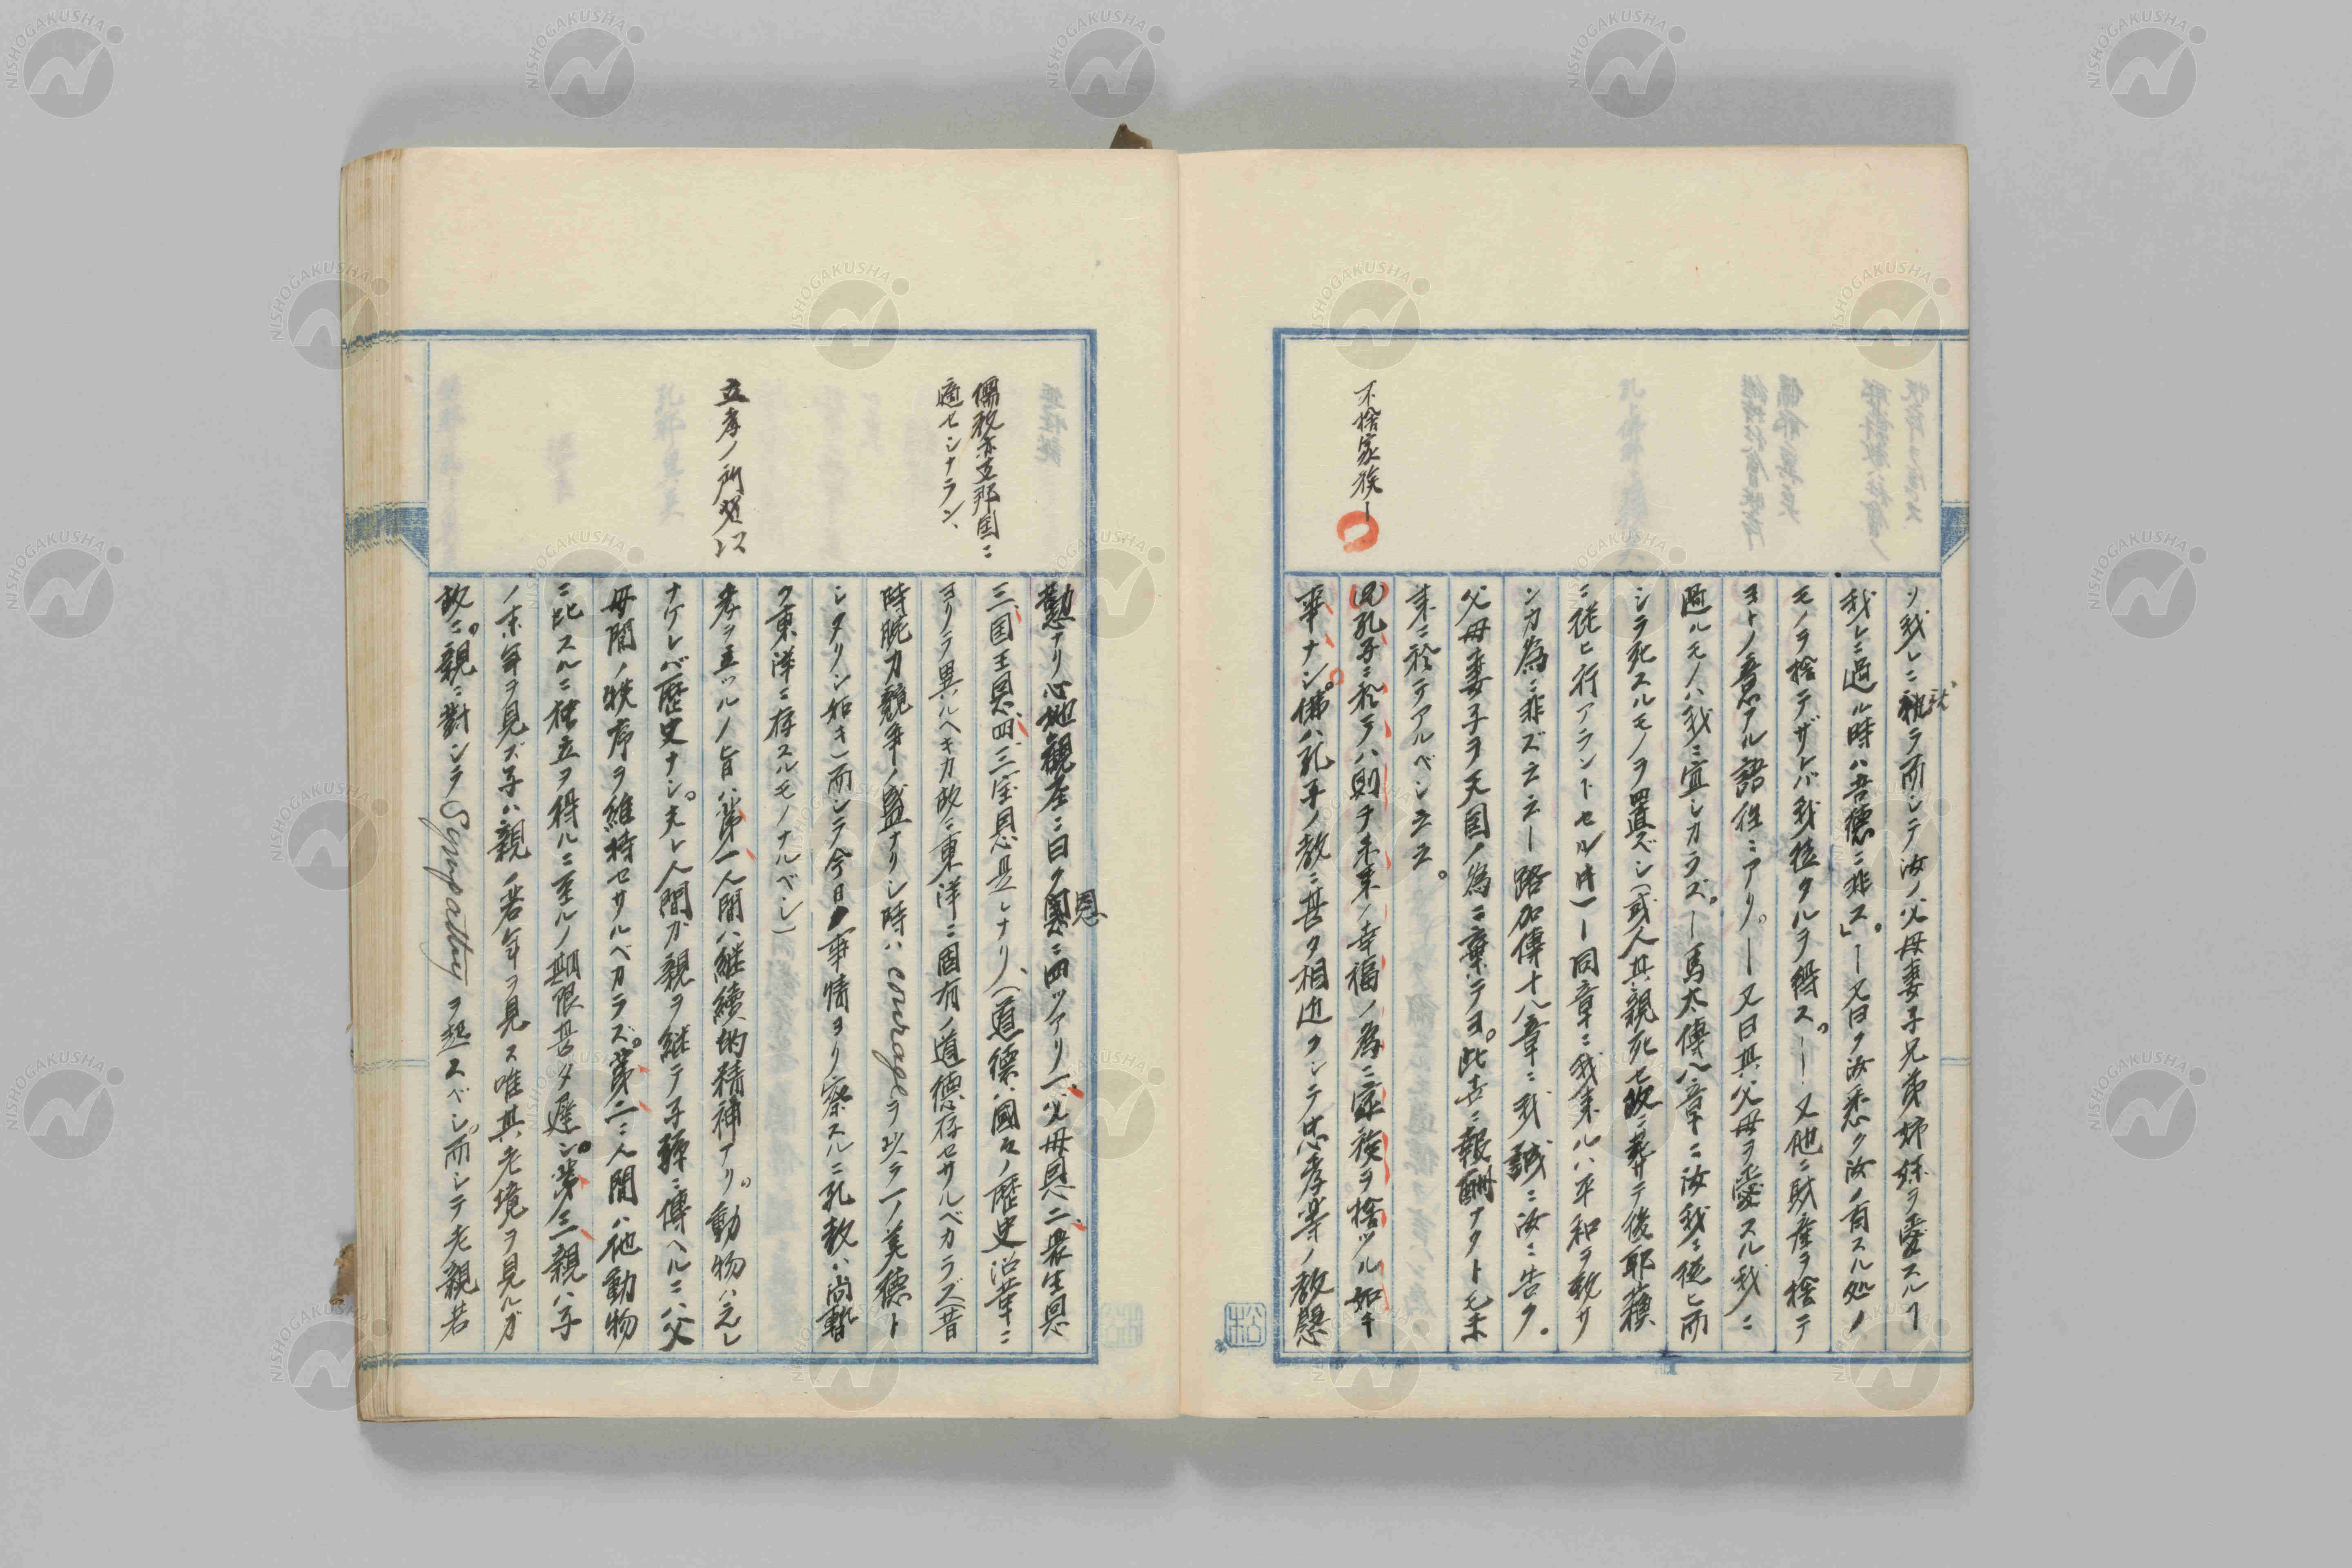 不捨家族ー
ソ我レニ親ラ而シテ汝ノ父母妻子兄弟姉妹ヲ愛スルヿ
我レニ過ル時ハ吾徳ニ非ス。」ー又曰ク汝悉ク汝ノ有スル処ノ
モノヲ捨テザレバ我徒タルヲ得ス。ー又他ニ財産ヲ捨テ
ヨトノ意アル語往々アリ。ー又曰其父母ヲ愛スル我ニ
過ルモノハ我ニ宜シカラズ。ー馬太傳八章ニ汝我ニ從ヒ而
シラ死スルモノヲ置ズシ(或人其親死セ故ニ葬サテ後耶蘓
ニ従ヒ行アラントセル時)ー同章ニ我来ルハ平和ヲ致サ
ンカ為ニ非ズ云云ー路加傳十八章ニ我誠ニ汝ニ告ク。
父母妻子ヲ天国ノ為ニ棄テヨ。此世ニ報酬ナクトモ未
来ニ於テアルベシ云云。
(四)孔子ニ於テハ則チ未来ノ幸福ノ為ニ家族ヲ捨ツル如キ
事ナシ。佛ハ孔子ノ教ニ甚タ相近クシテ忠孝等ノ教慇
儒教亦支那国ニ
適セシナラン、
立孝ノ所以
懃ナリ心地観経ニ曰ク恩ニ四ツアリ一、父母恩二、衆生恩
三、国王恩、四、三宝恩是レナリ、(道徳ハ國々ノ歴史沿革ニ
ヨリテ異ルヘキカ故ニ東洋ニ固有ノ道徳存セサルベカラズ(昔
時腕力競争ノ盛ナリシ時ハcourageヲ以テ一ノ美徳ト
シタリシ如キ)而シテ今日ノ事情ヨリ察スルニ孔教ハ尚暫
ク東洋ニ存スルモノナルベシ)
孝ヲ立ツルノ旨ハ第一人間ハ継續的精神アリ。動物ハ之レ
ナケレバ歴史ナシ。夫レ人間ガ親ヲ継テ子孫ニ傳ヘルニハ父
母間ノ秩序ヲ維持セサルベカラズ。第二ニ人間ハ他動物
ニ比スルニ獨立ヲ得ルニ至ルノ期限甚タ遅シ。第三親ハ子
ノ末年ヲ見ズ子ハ親ノ若年ヲ見ス唯其老境ヲ見ルガ
故ニ。親ニ對シテSympathyヲ起スベシ。而シテ老親若
松
NISHOGAKUSHA